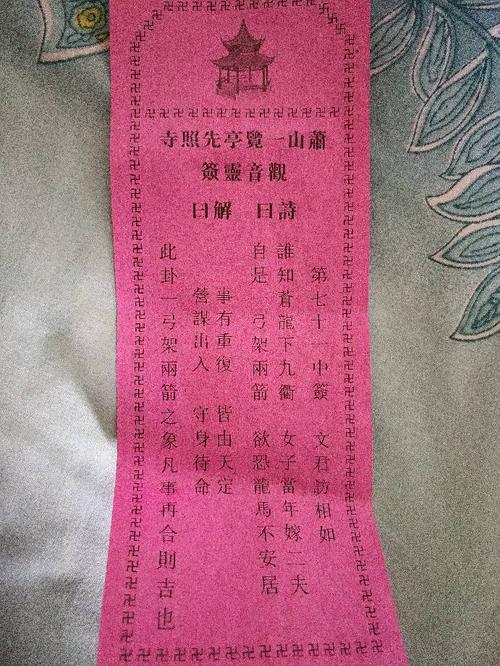 蕭山一覽亭先照寺
觀音靈簽
詩曰 解曰
第七十一中簽 文君訪相如
誰知蒼龍下九衢 女子當年嫁二夫
自是弓架兩箭 欲恐龍馬不安居
事有重復 皆由天定
營謀出入 守身待命
此卦一弓架兩箭之象凡事再合則吉也